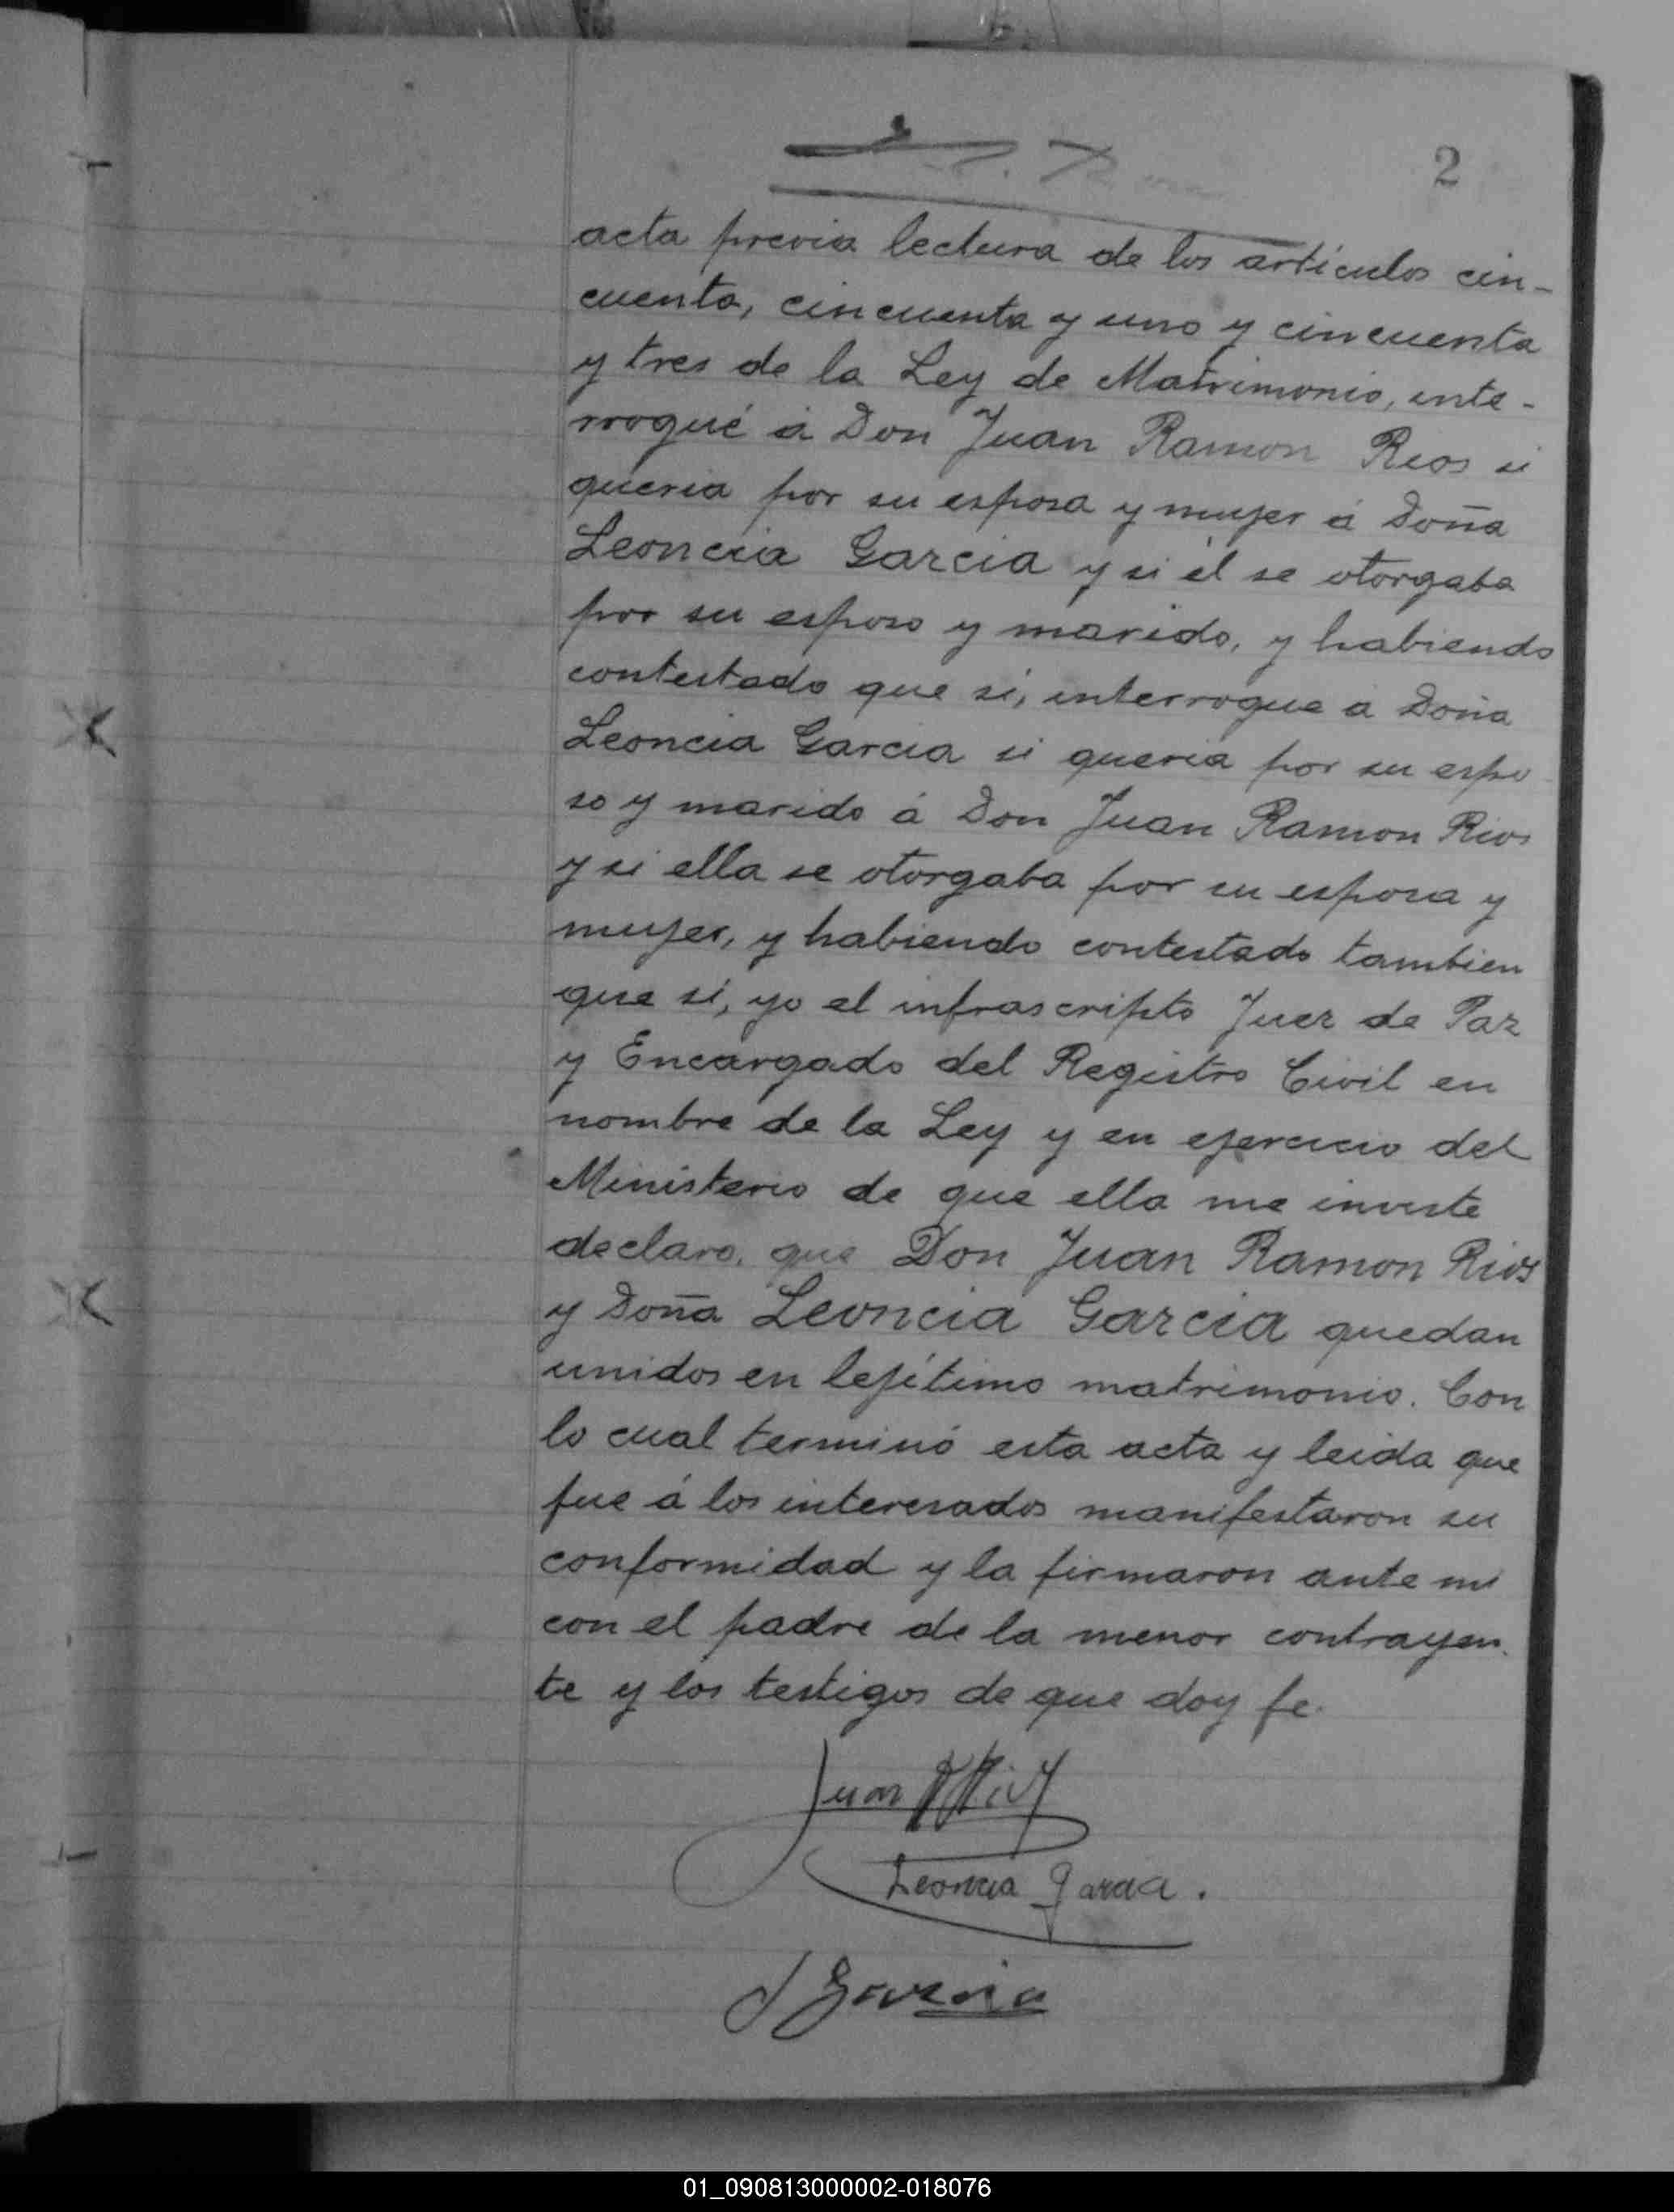 2
acta previa lectura de los artículos cin-
cuenta, cincuenta y uno y cincuenta
y tres de la Ley de Matrimonio, inte-
rrogué á Don Juan Ramon Rios si
queria por su esposa y mujer á Doña
Leoncia Garcia y si él se otorgaba
por su esposo y marido, y habiendo
contestado que sí, interrogue a Doña
Leoncia Garcia si queria por su espo
so y marido á Don Juan Ramon Rios
y si ella se otorgaba por su esposa y
mujer, y habiendo contestado tambien
que sí, yo el infrascripto Juez de Paz
y Encargado del Registro Civil en
nombre de la Ley y en ejercicio del
Ministerio de que ella me inviste
declaro, que Don Juan Ramon Rios
y Doña Leoncia Garcia quedan
unidos en lejítimo matrimonio. Con
lo cual terminó esta acta y leida que
fue á los interesados manifestaron su
conformidad y la firmaron ante mi
con el padre de la menor contrayen-
te y los testigos de que doy fe.
Juan R Rios
Leoncia Garcia.
J Garcia
01_090813000002-018076